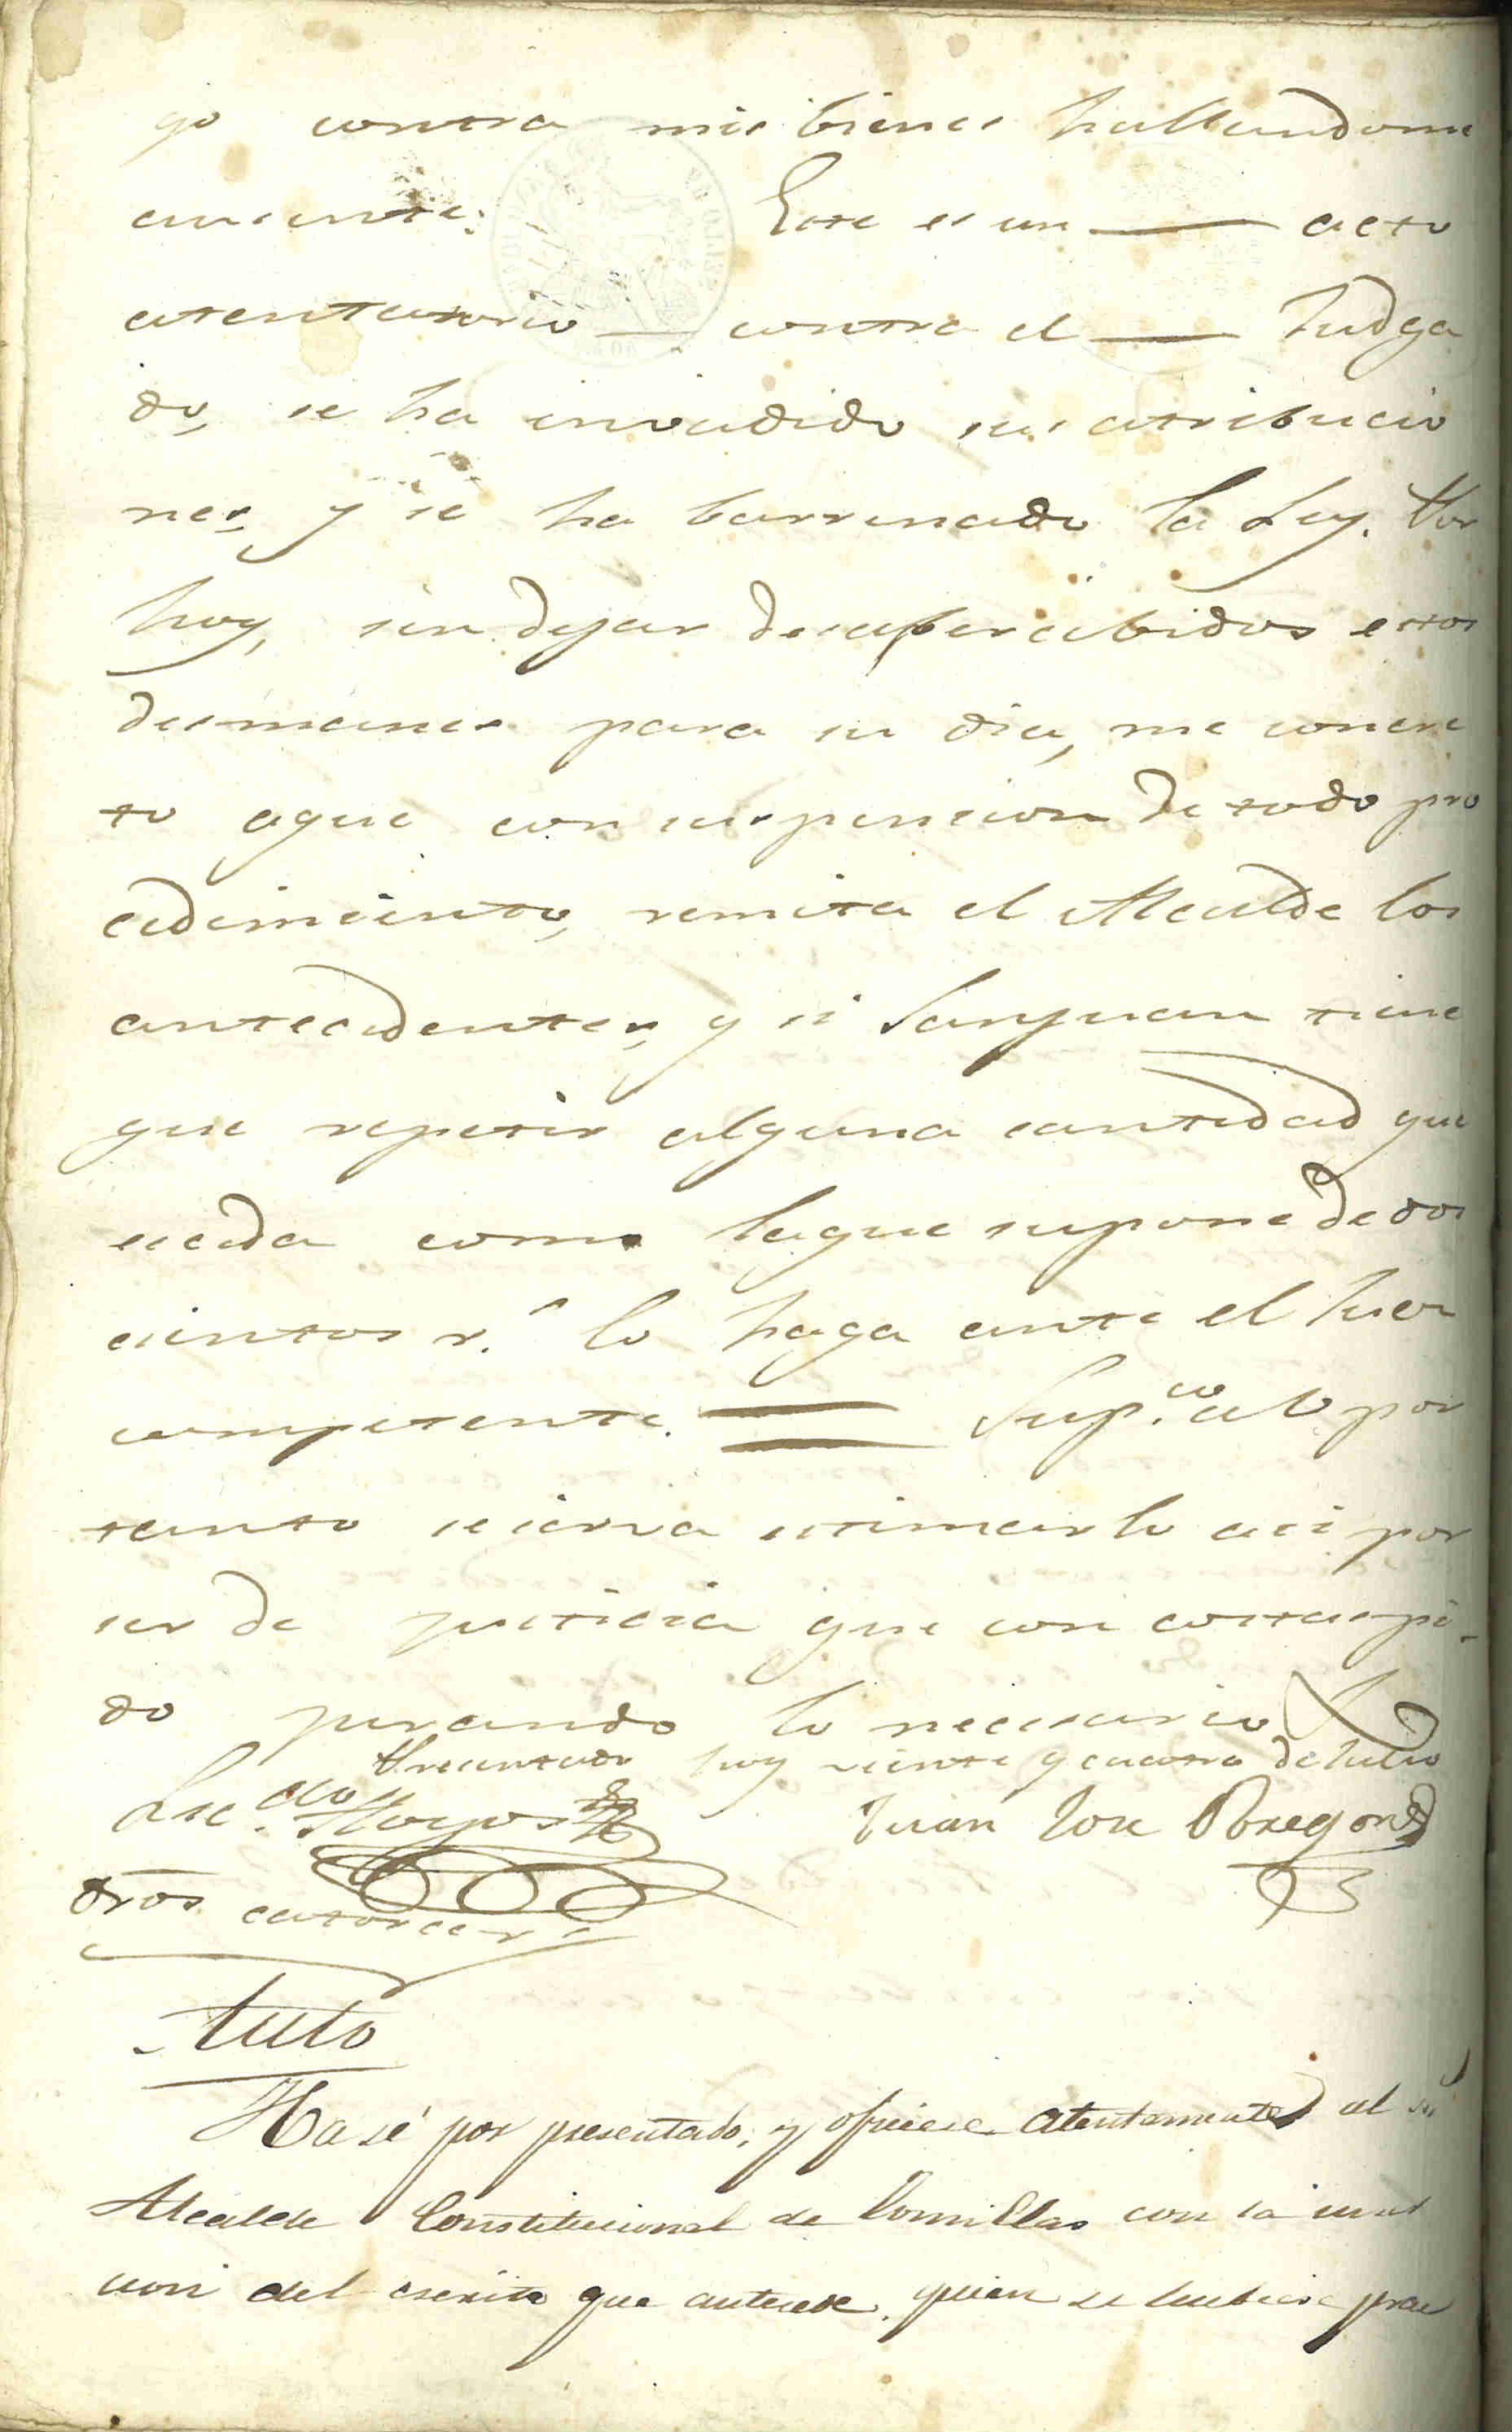 go contra mis bienes hallandome
ausente. Este es un — acto
atentatorio — contra el — Juzga
do, se ha invadido sus atribucio
nes, y se ha barrenado la Ley. Por
hoy, sin dejar desapercibidos estos
desmanes para su dia, me concre
to aque con suspension de todo pro
cedimiento, remita el Alcalde los
antecedentes, y si Sanjuan tiene
que repetir alguna cantidad que
eceda como laque supone de dos
cientos r.^s lo haga ante el Juez
competente. = Sup.^co a V. por
tanto se sirva estimarlo asi por
ser de justicia que con costas pi-
do jurando lo necesario
Presentado hoy veinte y cuatro de Julio
Lic.^do Hoyos Juan Jose Obregon
Dros catorce r.^s
Auto
Hase por presentado, y oficiese atentamente al Sr
Alcalde Constitucional de Comillas con la inser
cion del escrito que antecede, quien se hubiese prac